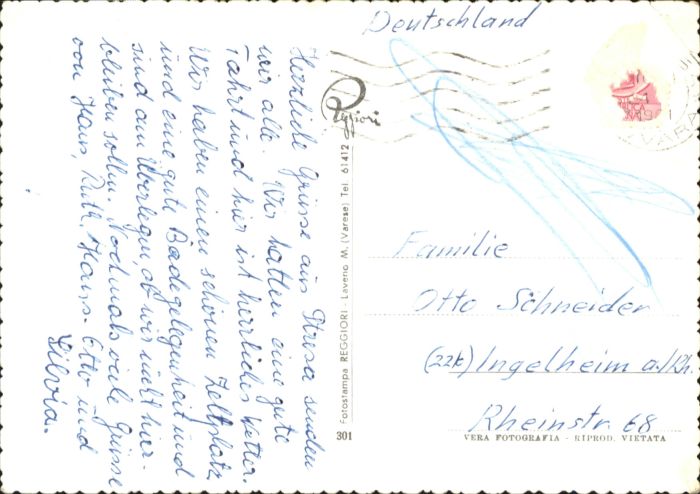 Herzliche Grüsse aus Stresa senden
wir alle. Wir hatten eine gute
Fahrt und hier ist herrliches Wetter.
Wir haben einen schönen Zeltplatz
und eine gute Badegelegenheit und
sind am Überlegen, ob wir nicht hier-
bleiben sollen. Nochmals viele Grüsse
von Hans, Ruth, Hans-Otto und
Silvia.
Reggiori
Fotostampa REGGIORI - Laveno M. (Varese) Tel. 61412
301
Deutschland
Familie
Otto Schneider
(22k) Ingelheim a./Rh.
Rheinstr. 68
VERA FOTOGRAFIA - RIPROD. VIETATA